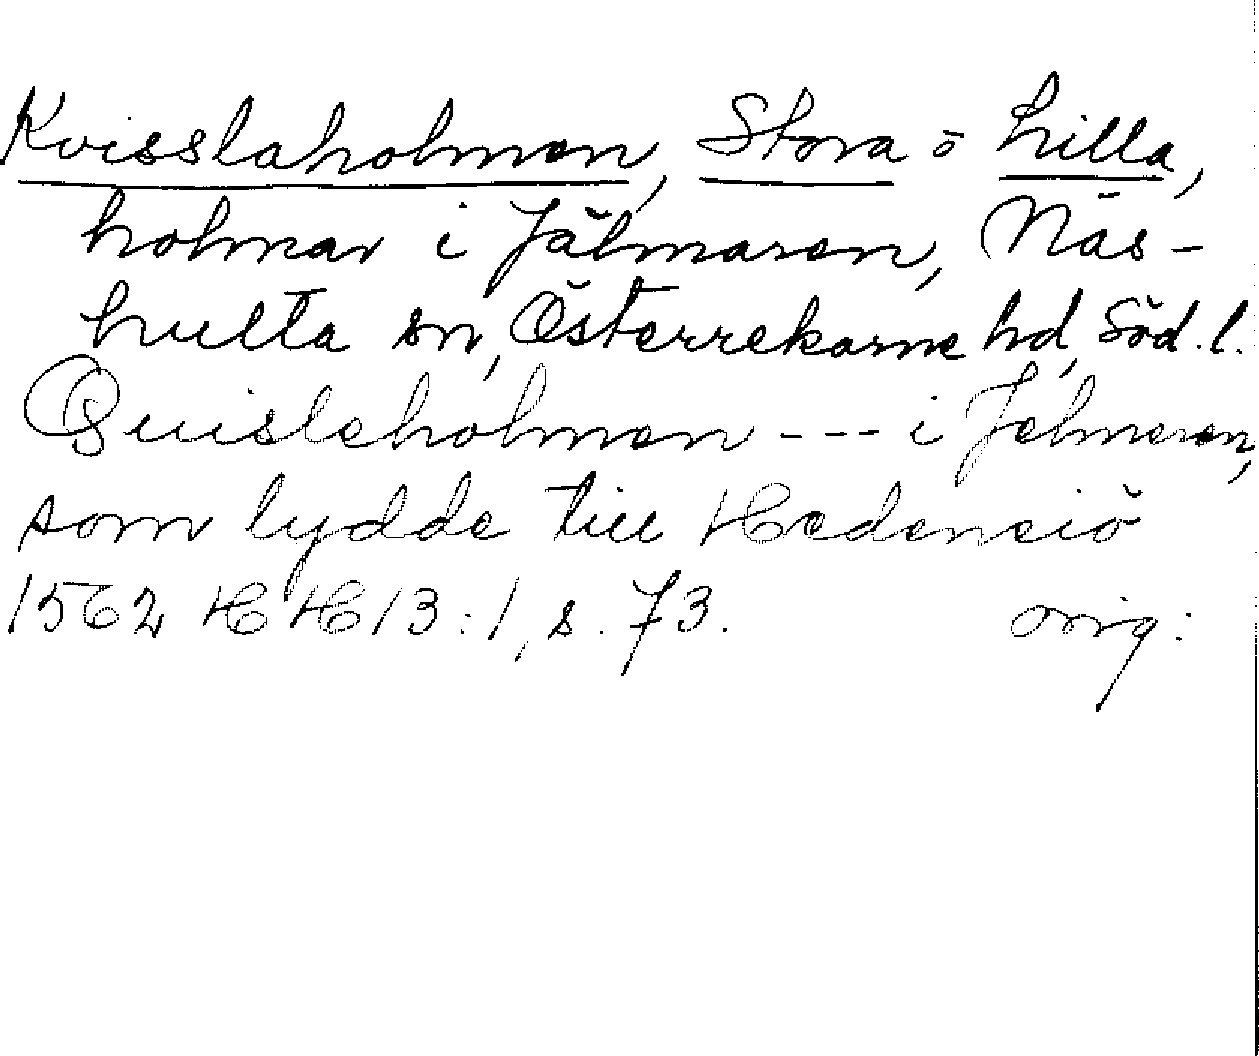 Kvisslaholmen, Stora o Lilla,
holmar i Jälmaren, Näs-
hulta sn, Österrekarne hd, Söd. l.
Quisleholmen --- i Jelmeren,
som lydde till Hedensiö
1562 HH 13:1, s. 73. orig: